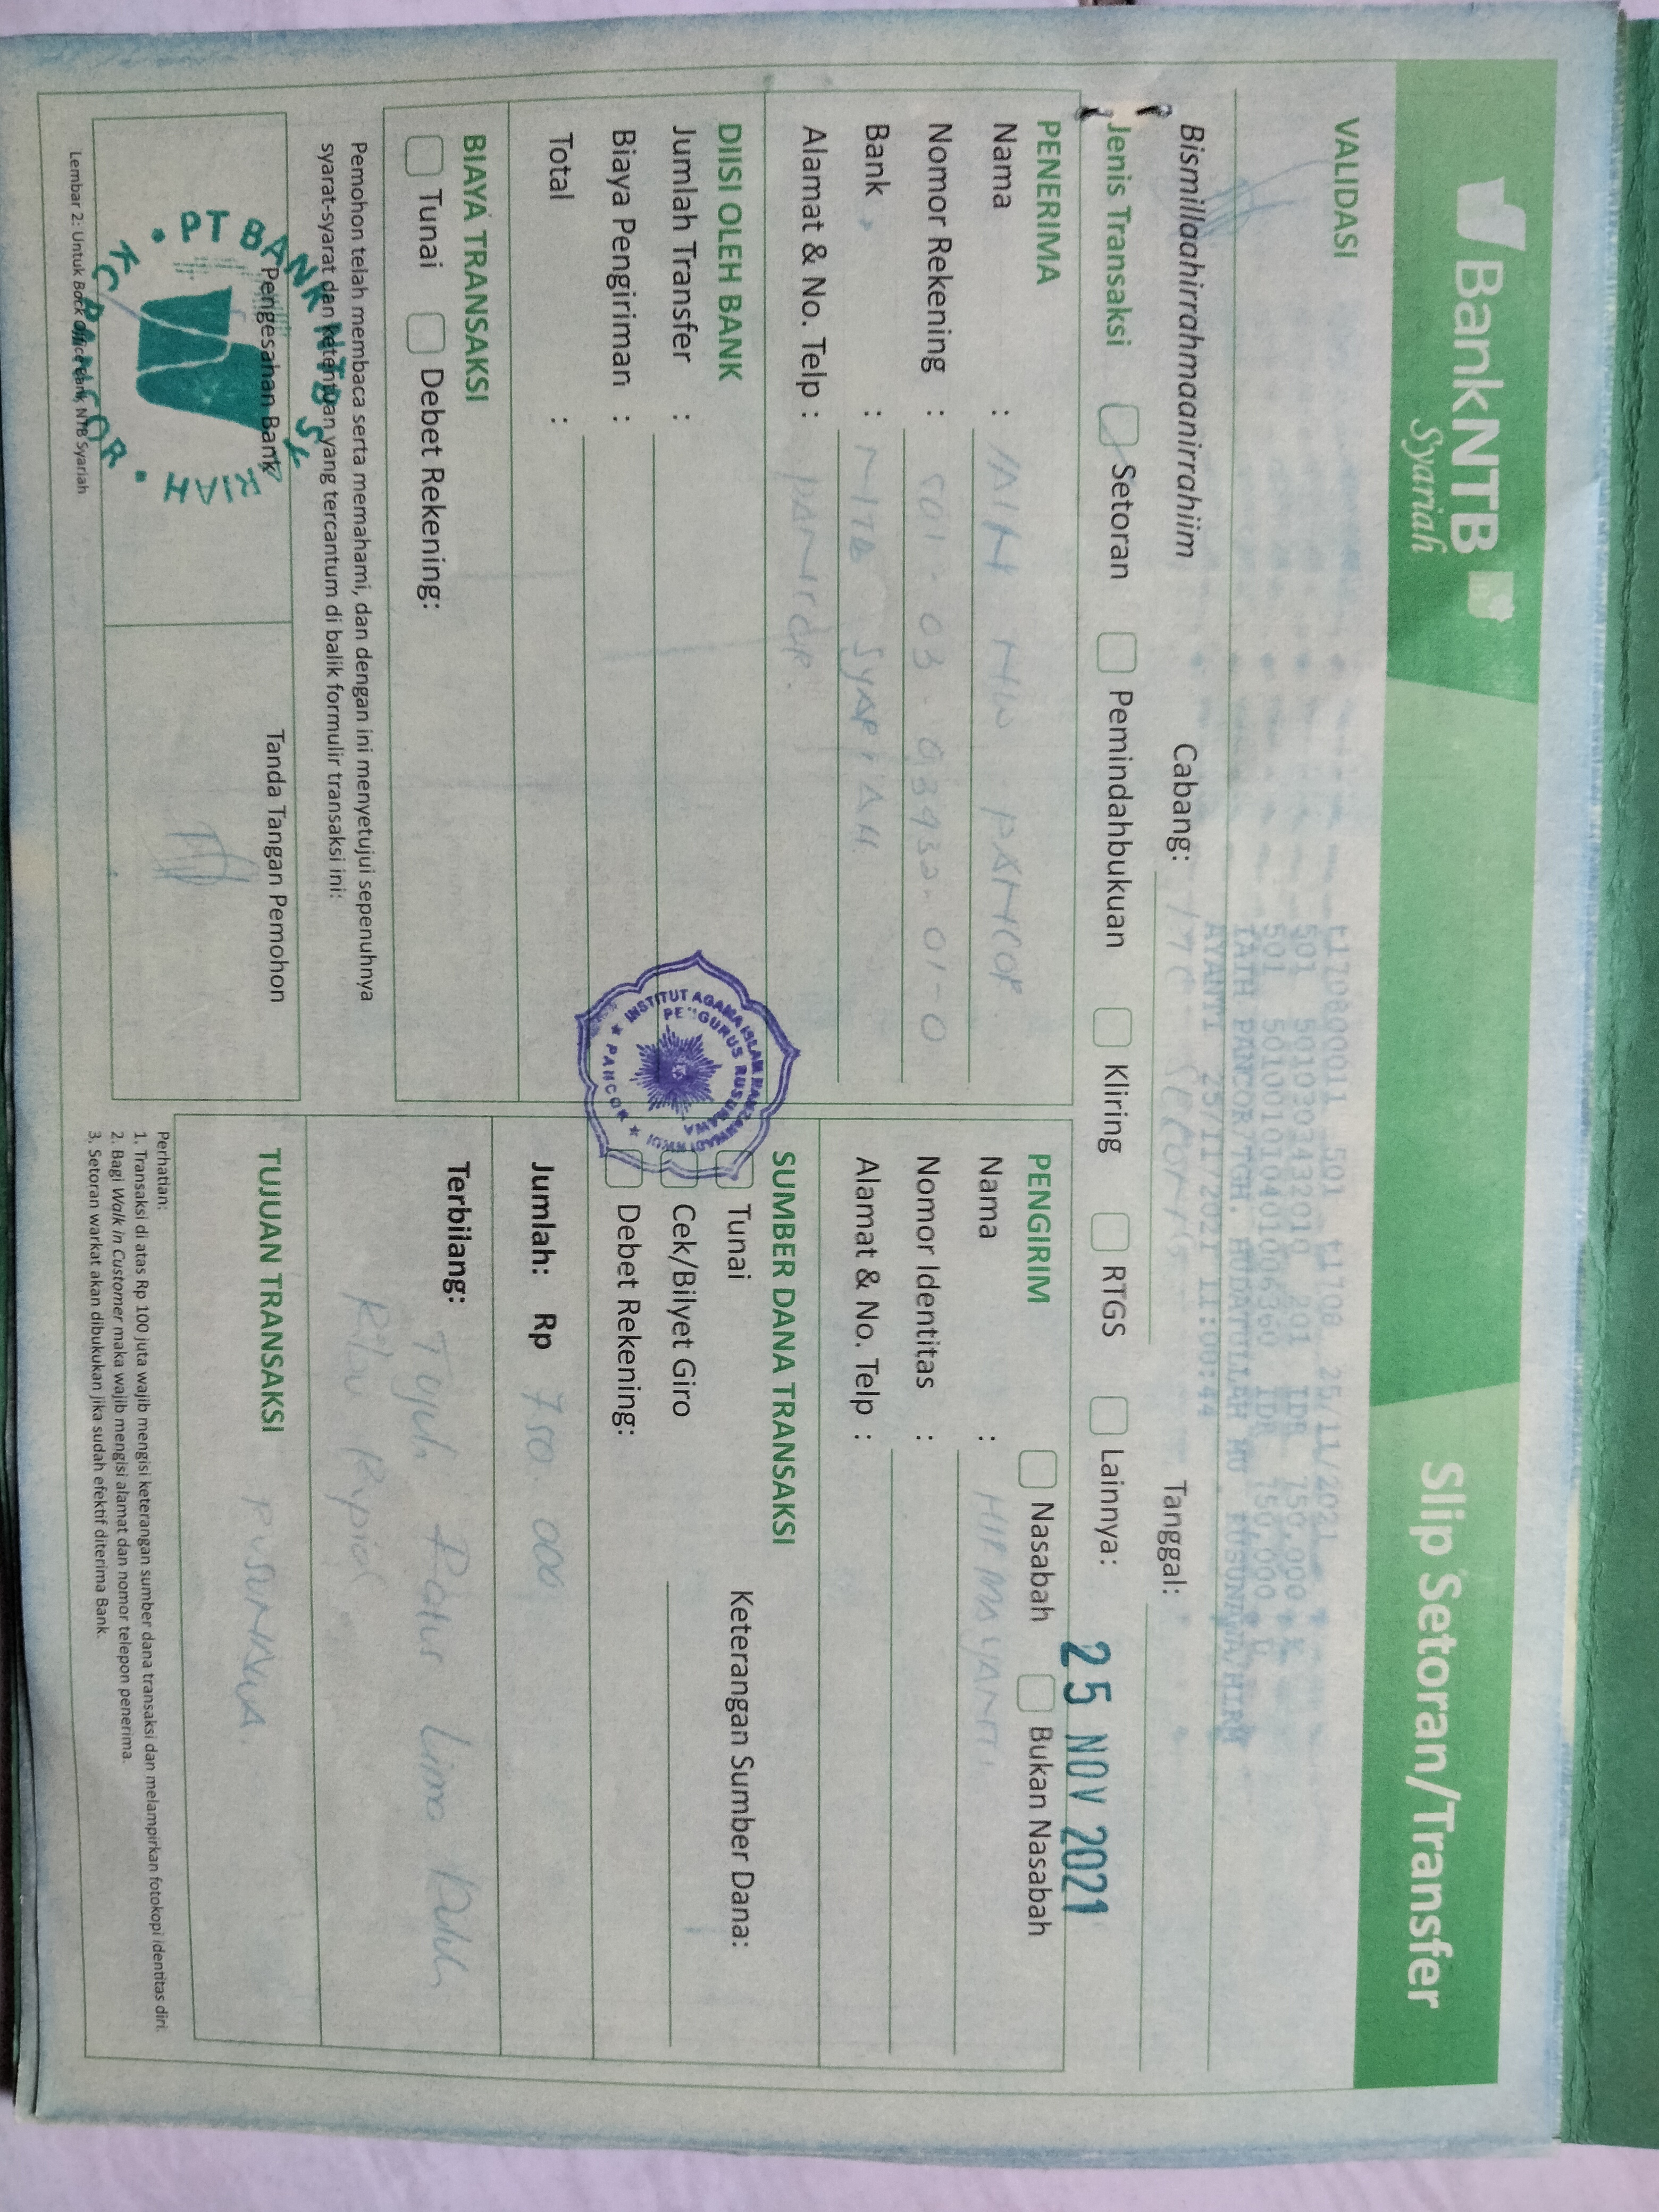 BankNTB
Syariah
Slip Setoran/Transfer
VALIDASI
t170800011 501 t1708 25/11/2021
501 5010303432010 201 IDR 750,000
501 501001010401006360 IDR 750,000
IAIH PANCOR/TGH. HUDATULLAH MU RUSUNAWA/HIRM
AYANTI 25/11/2021 11:00:44
Bismillaahirrahmaanirrahiim
Cabang:
Tanggal:
Jenis Transaksi Setoran Pemindahbukuan Kliring RTGS Lainnya:
25 NOV 2021
PENERIMA
Nama : IAIH NW PANCOR
Nomor Rekening : 501-03-03432-01-0
Bank : NTB SYARIAH
Alamat & No. Telp : PANCOR.
PENGIRIM Nasabah Bukan Nasabah
Nama : HIRMAYANTI
Nomor Identitas :
Alamat & No. Telp :
DIISI OLEH BANK
Jumlah Transfer :
Biaya Pengiriman :
Total :
INSTITUT AGAMA ISLAM HAMZANWADI
PENGURUS RUSUNAWA
PANCOR
SUMBER DANA TRANSAKSI
Tunai
Cek/Bilyet Giro
Debet Rekening:
Keterangan Sumber Dana:
Jumlah: Rp 750.000
BIAYA TRANSAKSI
Tunai Debet Rekening:
Terbilang: Tujuh Ratus Lima Puluh
Ribu Rupiah
Pemohon telah membaca serta memahami, dan dengan ini menyetujui sepenuhnya
syarat-syarat dan ketentuan yang tercantum di balik formulir transaksi ini:
Pengesahan Bank
Tanda Tangan Pemohon
PT BANK NTB SYARIAH
KC PANCOR
TUJUAN TRANSAKSI RUSUNAWA.
Perhatian:
1. Transaksi di atas Rp 100 juta wajib mengisi keterangan sumber dana transaksi dan melampirkan fotokopi identitas diri.
2. Bagi Walk in Customer maka wajib mengisi alamat dan nomor telepon penerima.
3. Setoran warkat akan dibukukan jika sudah efektif diterima Bank.
Lembar 2: Untuk Back Office Bank NTB Syariah